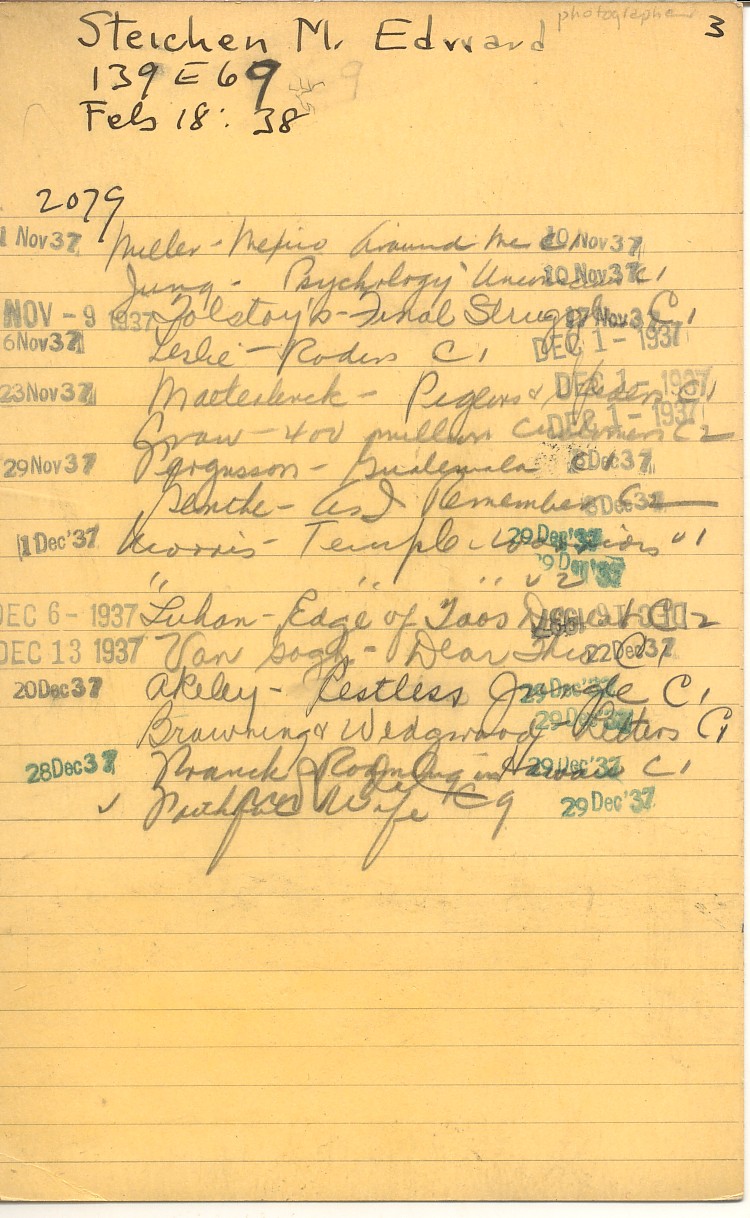 photographer 3
Steichen M. Edward
139 E 69
Feb 18: 38
2079
1 Nov 37 Miller - Mexico Around Me C1 10 Nov 37
Jung - Psychology Unconscious C1 10 Nov 37
NOV - 9 1937 Tolstoy's - Final Struggle C1 17 Nov 37
6 Nov 37 Leslie - Rodin C1 DEC 1 - 1937
23 Nov 37 Maeterlinck - Pigeons & Spiders C1 DEC 1 - 1937
Crow - 400 million Customers C2 DEC 1 - 1937
29 Nov 37 Fergusson - Guatemala C1 6 Dec 37
- As I Remember C2 8 Dec 37
1 Dec '37 Morris - Temple Warriors v1 29 Dec '37
" " " v2 29 Dec '37
DEC 6 - 1937 Luhan - Edge of Taos Desert C2
DEC 13 1937 Van Gogh - Dear Theo C1 22 Dec 37
20 Dec 37 Akeley - Restless Jungle C1 29 Dec '37
Browning & Wedgwood - Letters C1 29 Dec '37
28 Dec 37 Franck - Roaming in Hawaii C1 29 Dec '37
✓ Faithful Wife C9 29 Dec '37